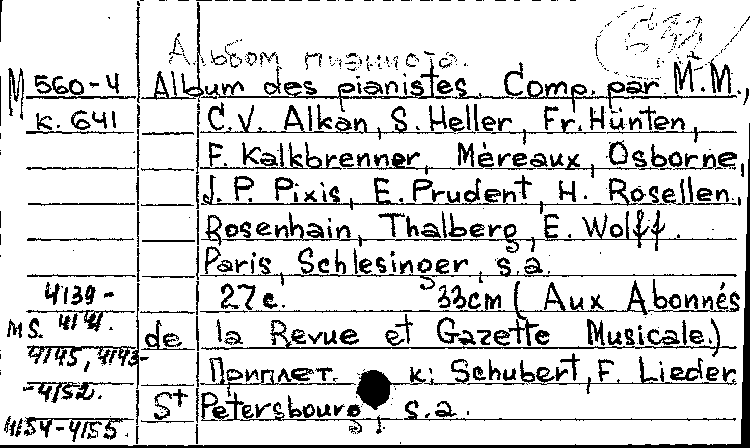 Альбом пианиста. 532
M 560-4 Album des pianistes. Comp. par M.M.,
к. 641 C.V. Alkan, S. Heller, Fr. Hünten,
F. Kalkbrenner, Méreaux, Osborne,
J. P. Pixis, E. Prudent, H. Rosellen,
Rosenhain, Thalberg, E. Wolff.
Paris, Schlesinger, s.a.
4139- 27c. 33cm (Aux Abonnés
MS. 4141. de la Revue et Gazette Musicale.)
4145, 4143- Приплет. к: Schubert, F. Lieder
-4152. St Petersbourg, s.a.
4154-4155.